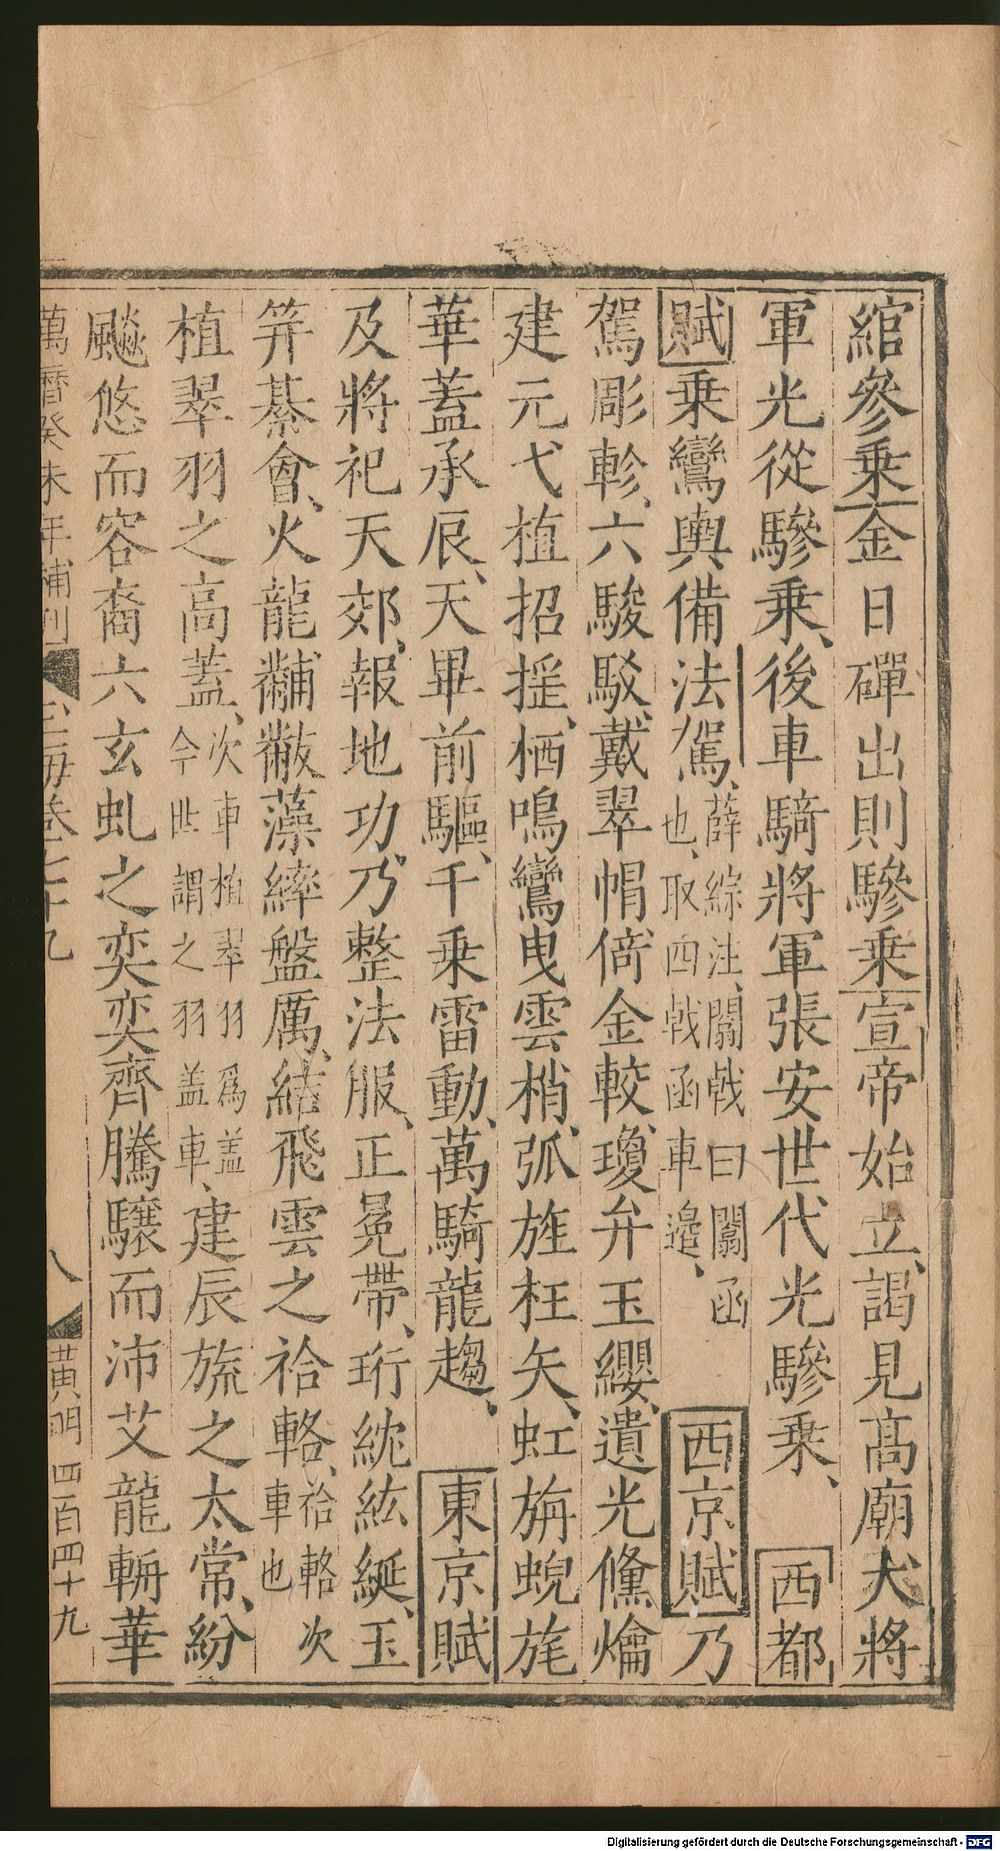 綰參乗金日磾出則驂乗宣帝始立謁見髙廟大將
軍光從驂乗後車騎將軍張安世代光驂乗西都
賦乗鸞輿備法駕薛綜注闟戟曰闟函也取四戟函車邉西京賦乃
駕彫軫六駿駮戴翠帽倚金較瓊弁玉纓遺光儵爚
建元弋植招揺栖鳴鸞曳雲梢弧旌枉矢虹旃蜺旄
華蓋承辰天畢前驅千乗雷動萬騎龍趨東京賦
及將祀天郊報地功乃整法服正冕帶珩紞紘綖玉
笄綦會火龍黼黻藻繂鞶厲結飛雲之袷輅袷輅次車也
植翠羽之高蓋次車植翠羽爲盖今世謂之羽盖車建辰旒之太常紛
飈悠而容裔六玄虬之奕奕齊騰驤而沛艾龍輈華
萬曆癸未年補刊 玉海卷七十九 八 黃明 四百四十九
Digitalisierung gefördert durch die Deutsche Forschungsgemeinschaft - DFG